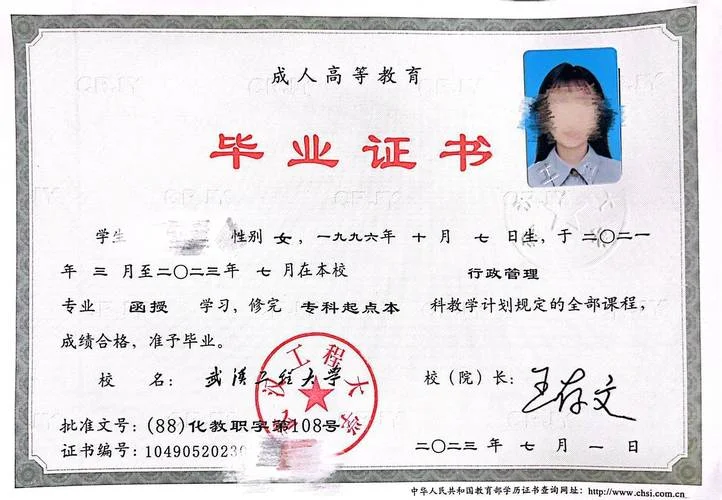 成人高等教育
毕业证书
学生 性别 女，一九九六年 十 月 七 日生，于 二〇二一
年 三 月至二〇二三年 七 月在本校 行政管理
专业 函授 学习，修完 专科起点本 科教学计划规定的全部课程，
成绩合格，准予毕业。
校 名： 武汉工程大学 校（院）长： 王存文
批准文号：(88)化教职字第108号
证书编号：1049052023
二〇二三年 七 月 一 日
中华人民共和国教育部学历证书查询网址：http://www.chsi.com.cn